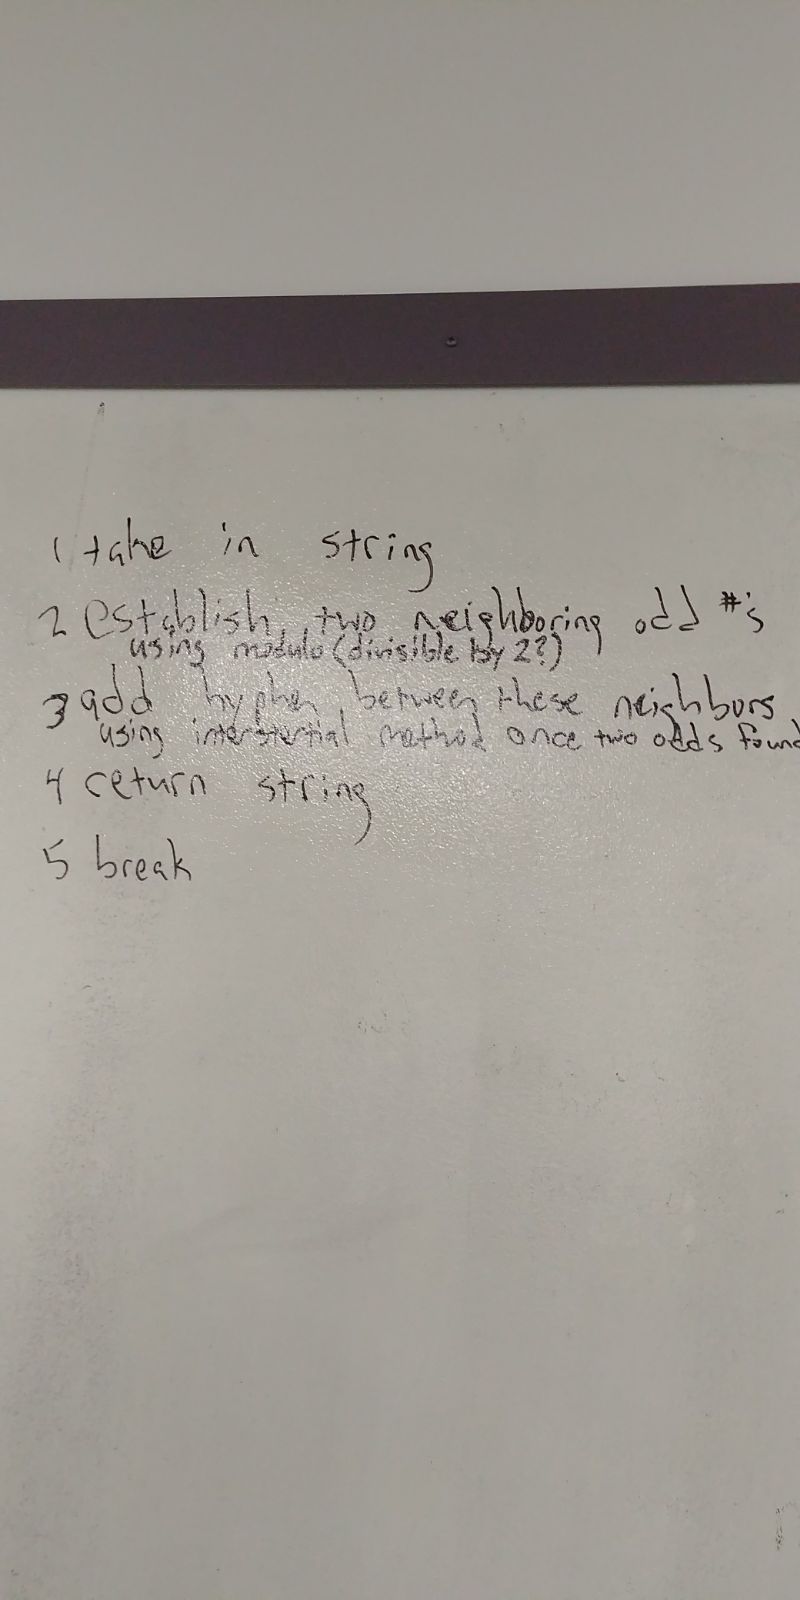 1 take in string
2 establish two neighboring odd #'s
using modulo (divisible by 2?)
3 add hyphen between these neighbors
using interstertial method once two odds found
4 return string
5 break